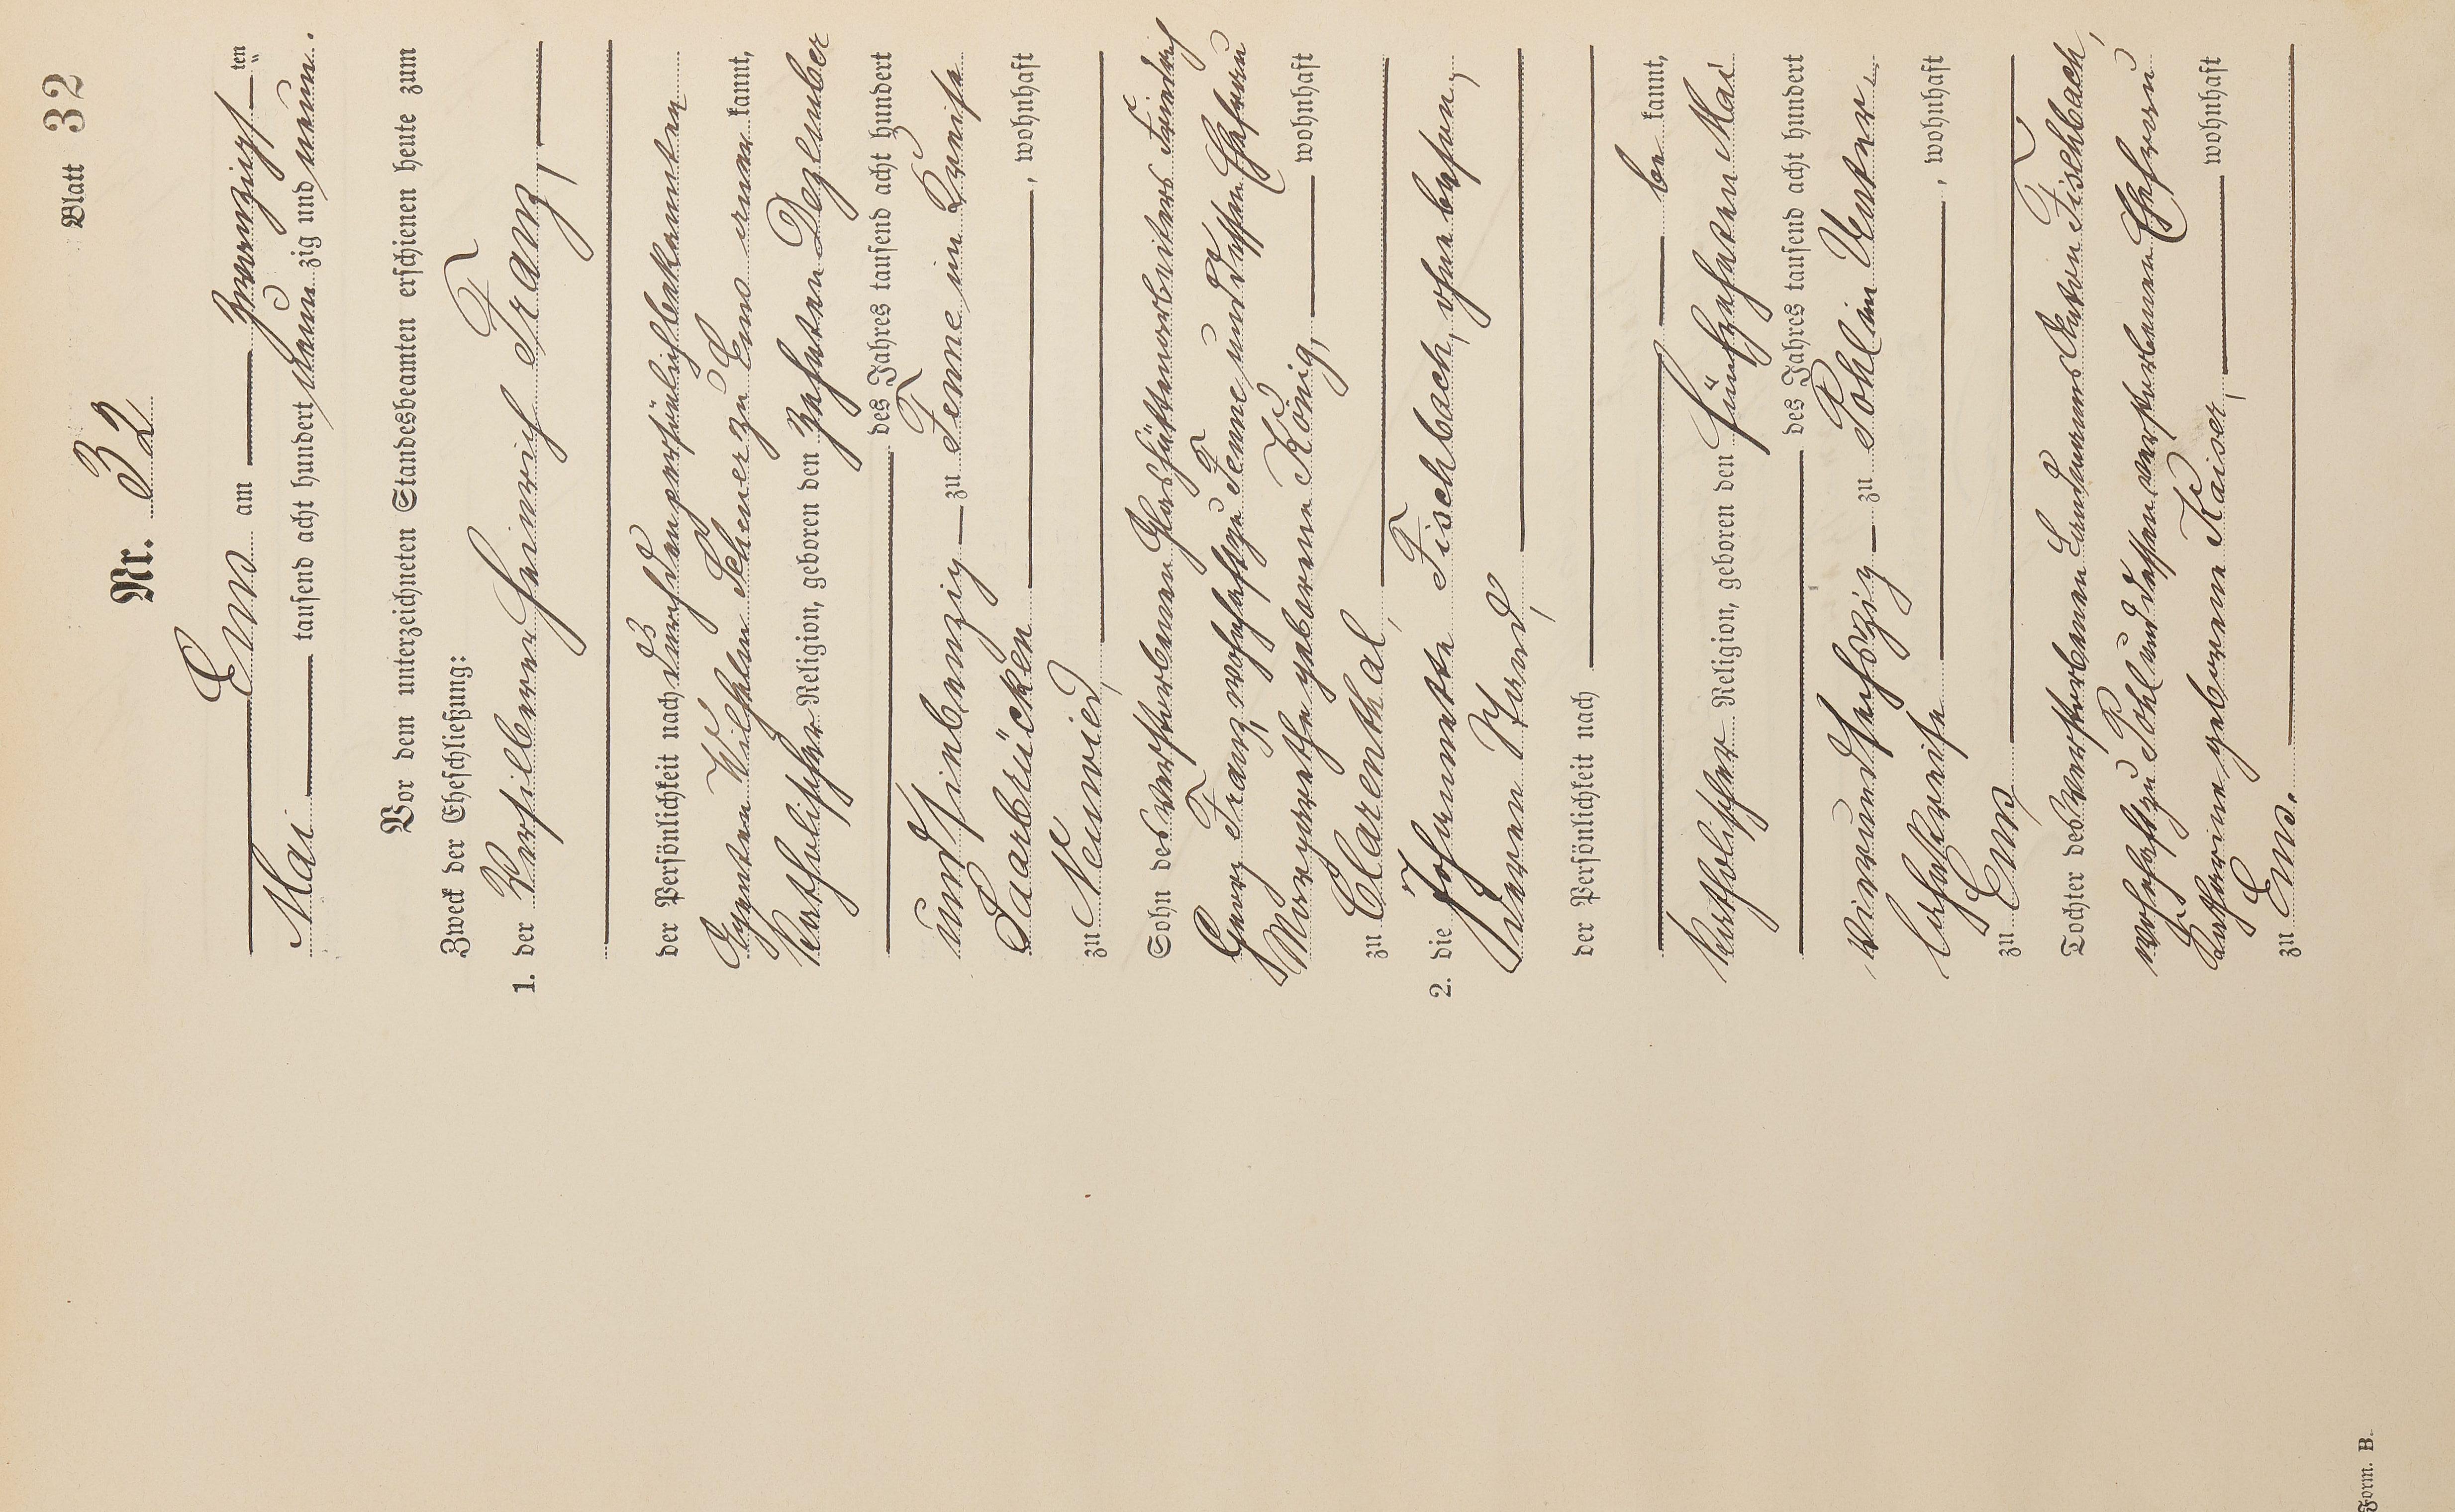 Blatt 32
Nr. 32
Ems am zwanzigsten
Mai tausend acht hundert neunzig und neun.
Vor dem unterzeichneten Standesbeamten erschienen heute zum
Zweck der Eheschließung:
1. der Versilberer Heinrich Franz,
der Persönlichkeit nach durch den persönlich bekannten
Agenten Wilhelm Scheuer zu Ems anerkannt,
katholischer Religion, geboren den zehnten Dezember
des Jahres tausend acht hundert
und siebenzig zu Fenne im Kreise
Saarbrücken, wohnhaft
zu Neuwied,
Sohn des verstorbenen Glashüttenarbeiters Friedrich
Georg Franz, wohnhaft zu Fenne und dessen Ehefrau
Margarethe geborene König, wohnhaft
zu Clarenthal,
2. die Johannette Fischbach, ohne besonderen
Stand,
der Persönlichkeit nach
bekannt,
katholischer Religion, geboren den fünfzehnten Mai
des Jahres tausend acht hundert
vierundsechszig zu Pohl im Unter
lahnkreise, wohnhaft
zu Ems,
Tochter des verstorbenen Landmanns Anton Fischbach,
wohnhaft zu Pohl und dessen verstorbenen Ehefrau
Katharina geborene Kaiser, wohnhaft
zu Ems.
Form. B.